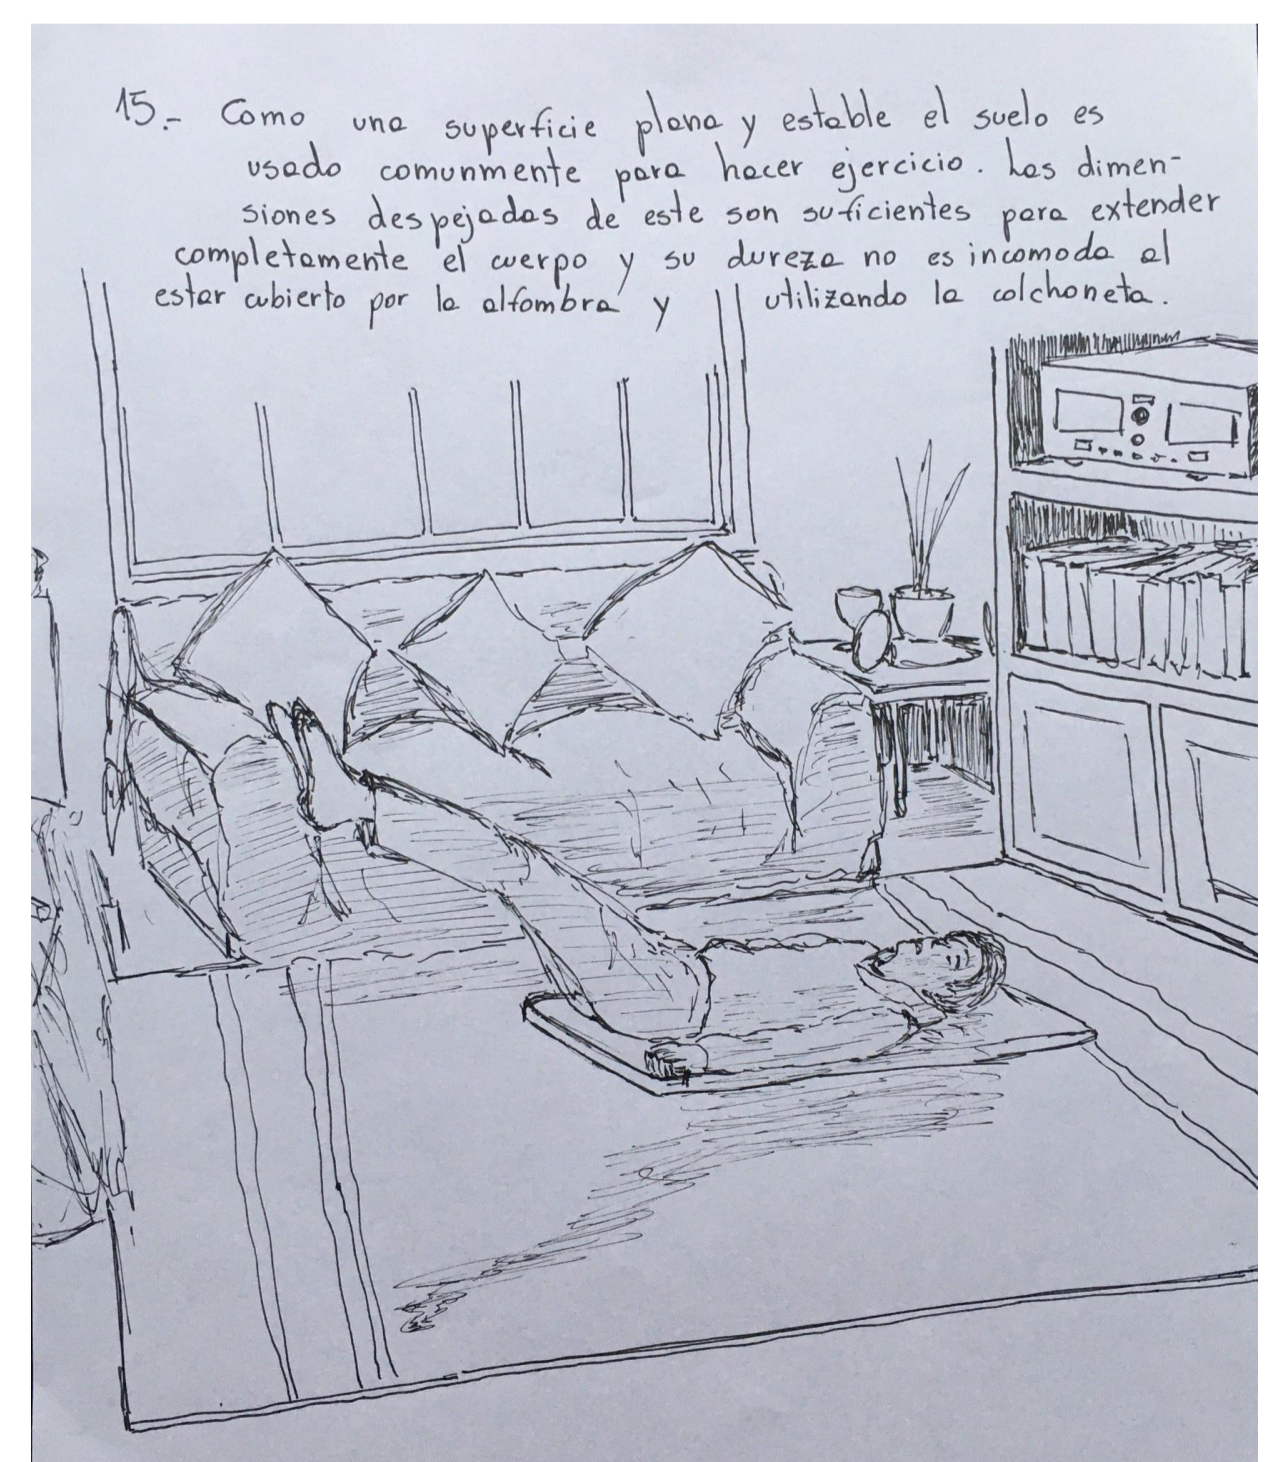 15.- Como una superficie plana y estable el suelo es
usado comunmente para hacer ejercicio. Las dimen-
siones despejadas de este son suficientes para extender
completamente el cuerpo y su dureza no es incomoda al
estar cubierto por la alfombra y utilizando la colchoneta.